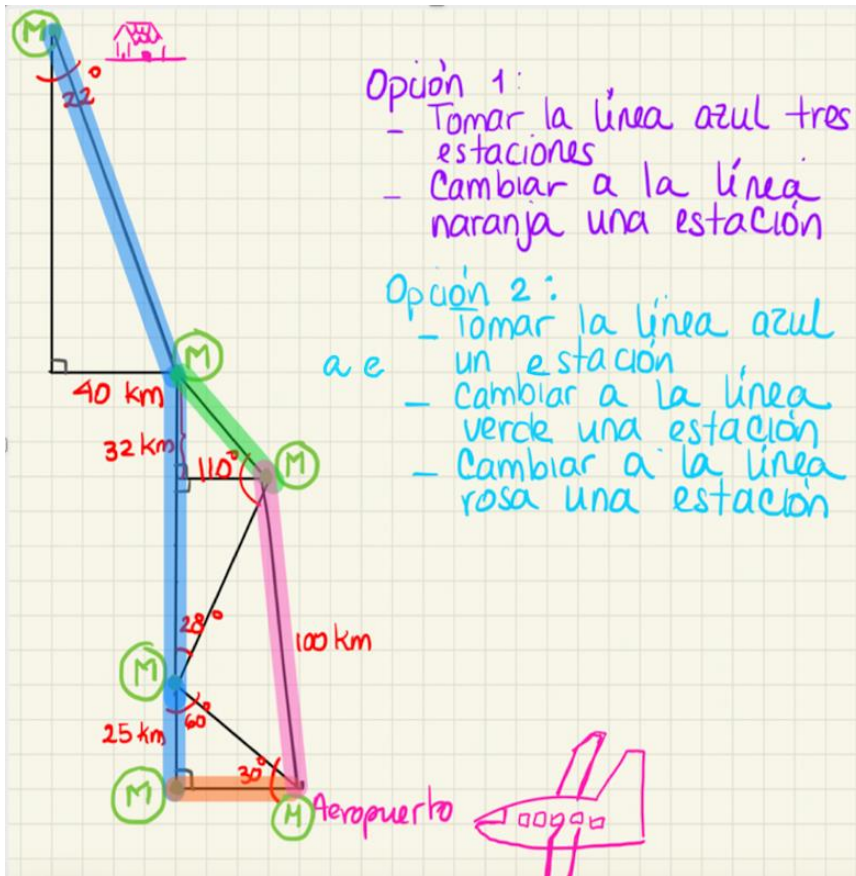 M
22°
Opción 1:
- Tomar la línea azul tres
estaciones
- Cambiar a la línea
naranja una estación
Opción 2:
- Tomar la línea azul
a e un estación
- Cambiar a la línea
verde una estación
- Cambiar a la línea
rosa una estación
M
40 km
32 km
110°
M
28°
100 km
M
60°
25 km
30°
M
M Aeropuerto